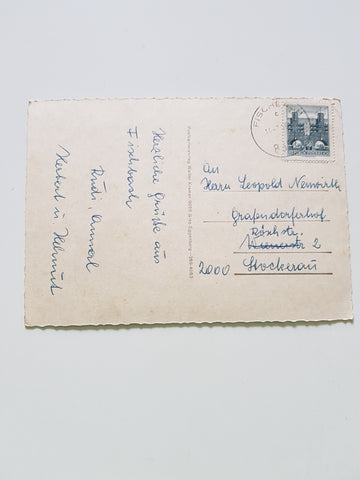 Herzliche Grüße aus
Fischbach
Rudi, Annerl
Herbert u. Helmut
FISCH
An
Herrn Leopold Neuwirth
Grafendorferhof
Röschstr.
Wienerstr 2
2000 Stockerau